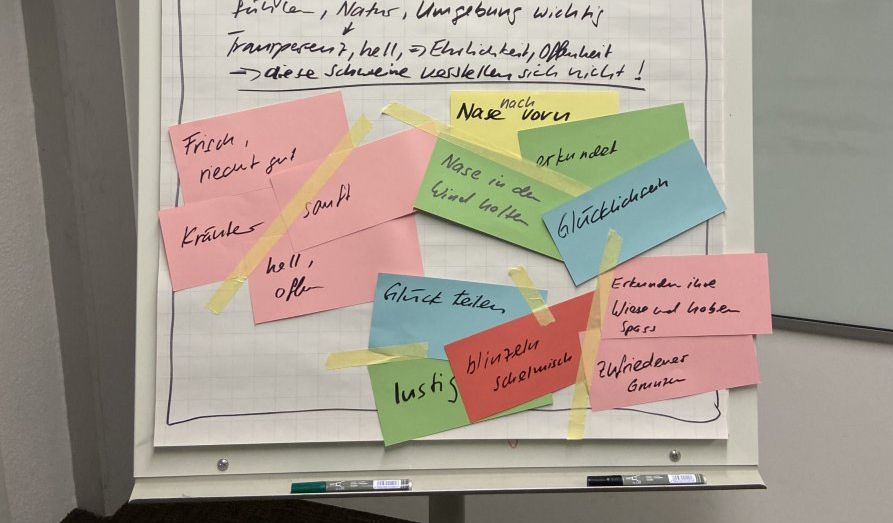 fühlen, Natur, Umgebung wichtig
Transparenz, hell, => Ehrlichkeit, Offenheit
-> diese Schweine verstellen sich nicht!
Nase nach vorn
Frisch,
riecht gut
erkundet
Nase in den
Wind halten
Glücklichsein
sanft
Kräuter
hell,
offen
Glück teilen
Erkunden ihre
Wiese und haben
Spass
blinzeln
schelmisch
zufriedenes
Grunzen
lustig